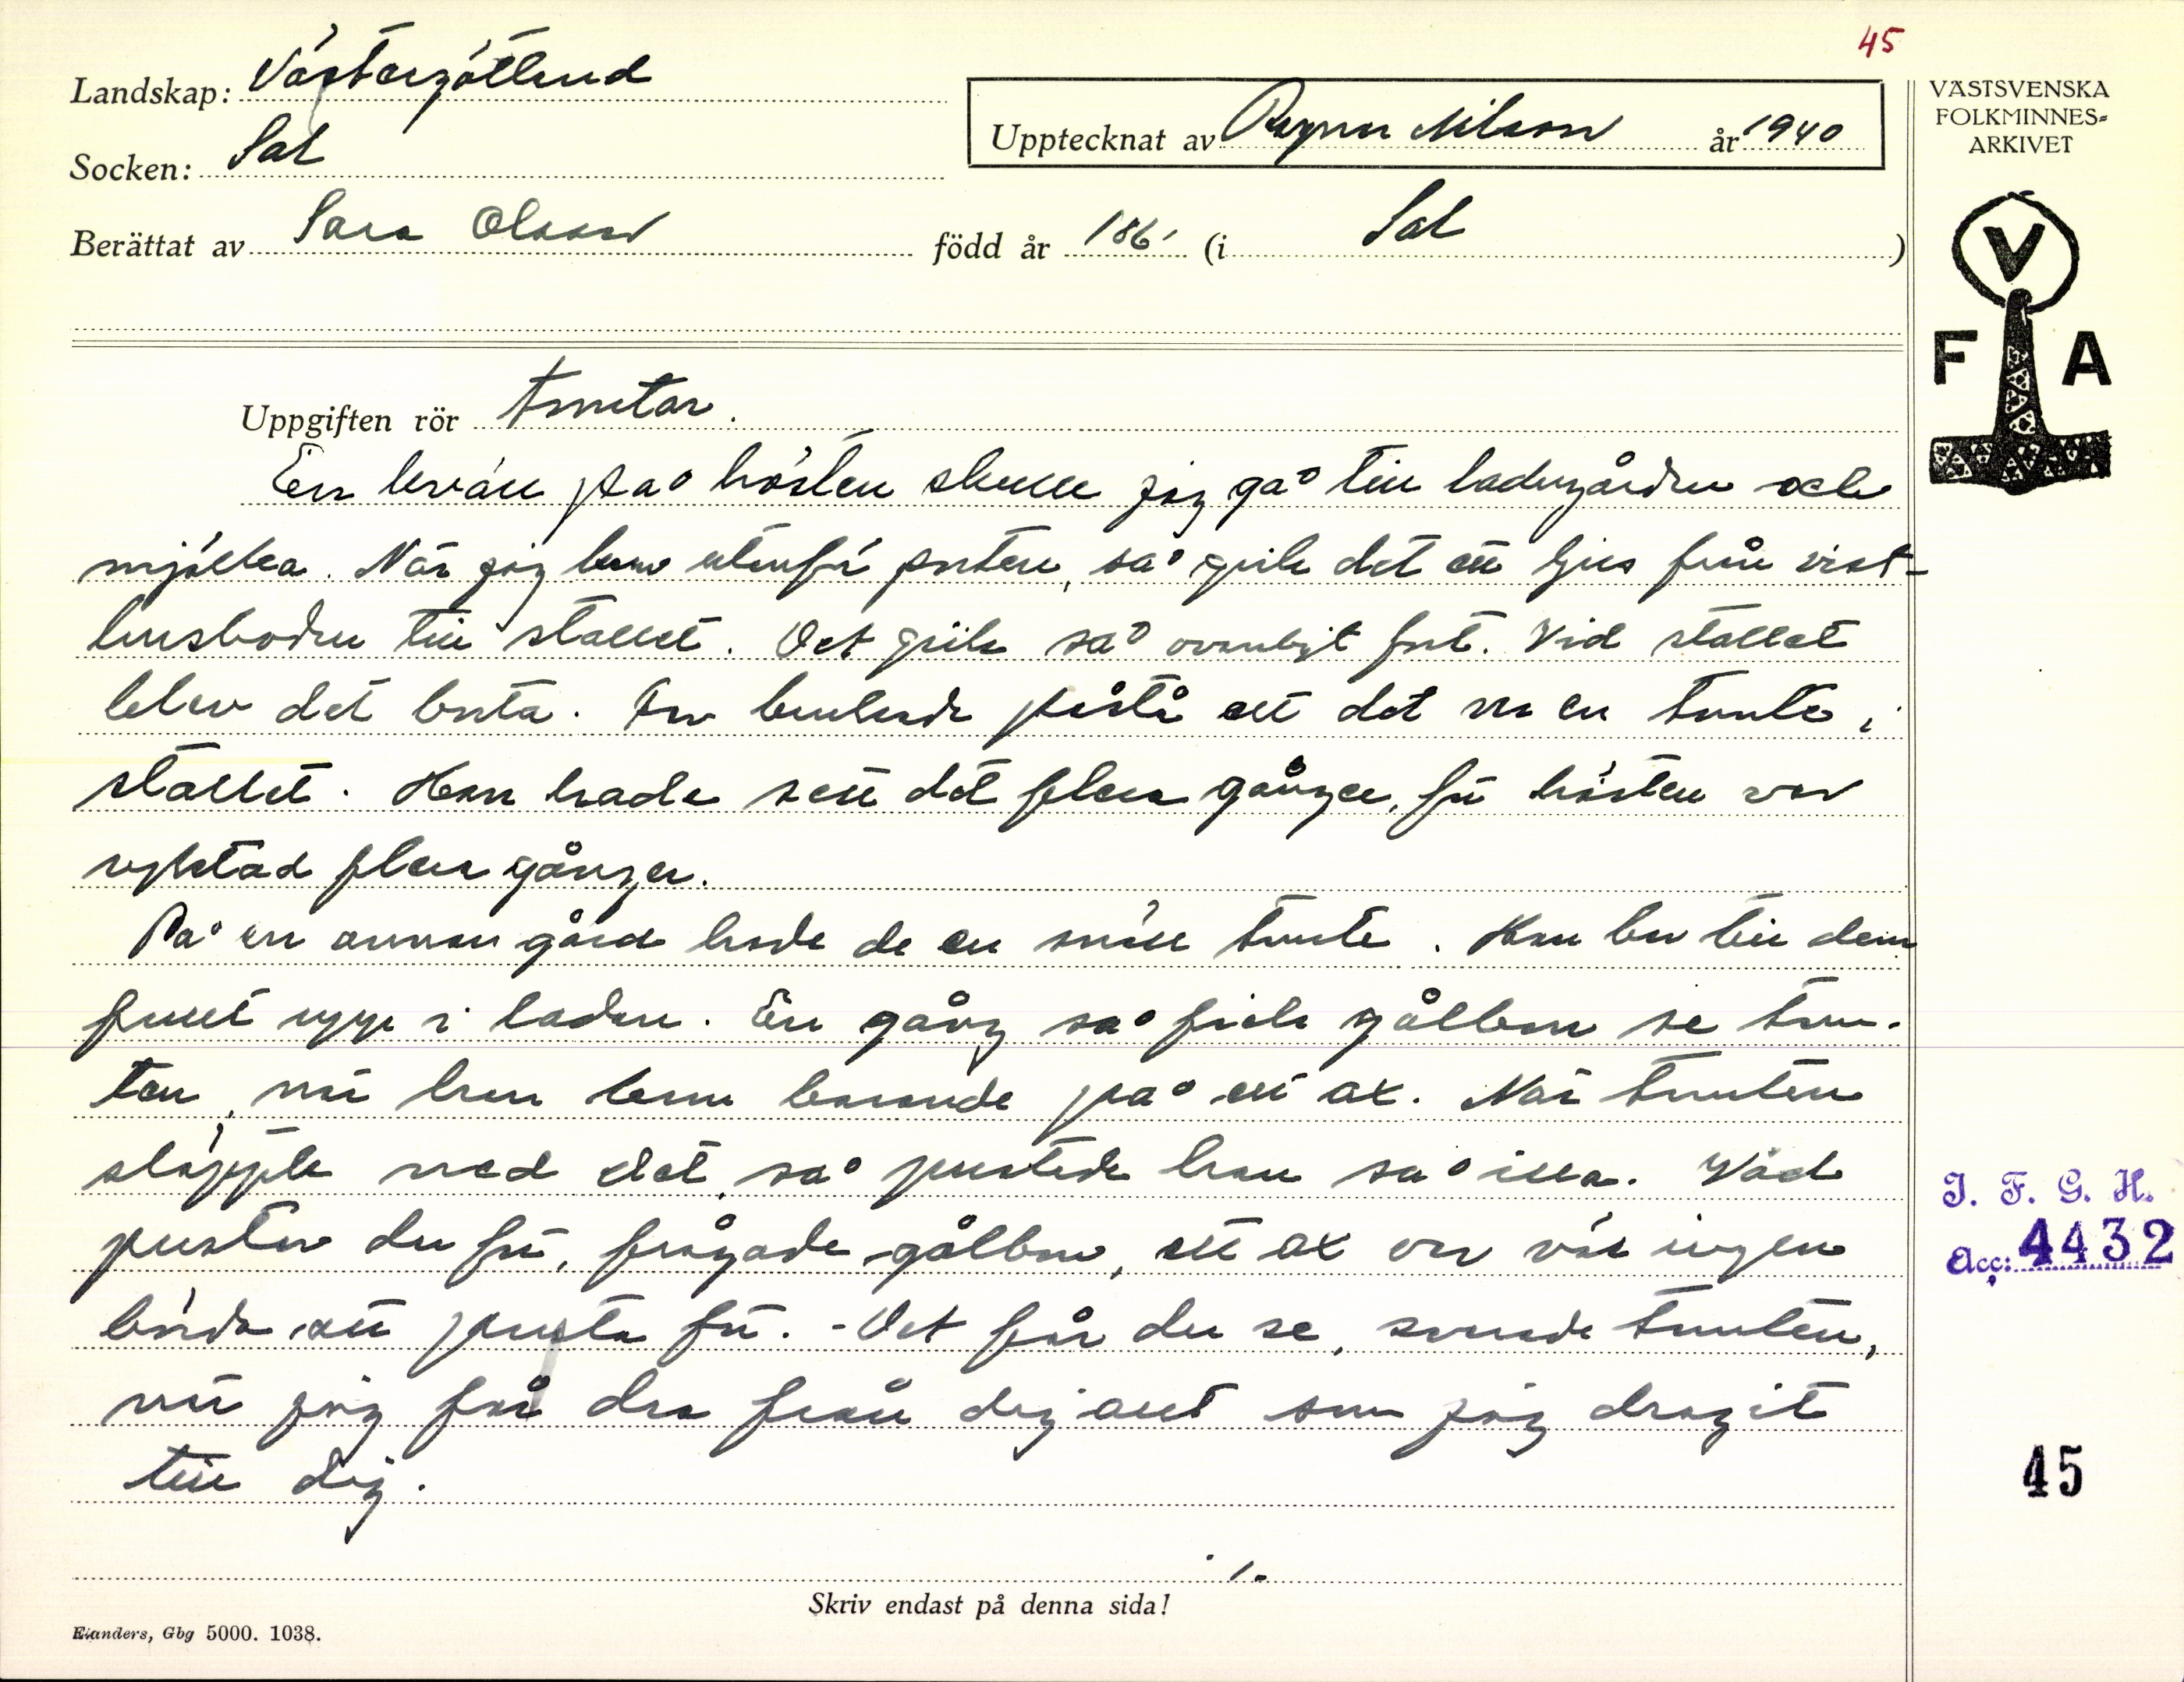 45
Landskap: Västergötland
Socken: Sal
Upptecknat av Ragnar Nilsson år 1940
Berättat av Sara Olsson född år 186 (i Sal)
VÄSTSVENSKA
FOLKMINNES-
ARKIVET
V
F A
Uppgiften rör Tomtar.
En kväll på hösten skulle jag gå till ladugården och
mjölka. När jag kom utanför porten, så gick det ett ljus från vist-
husboden till stallet. Det gick så ovanligt fort. Vid stallet
blev det borta. Far brukade påstå att det var en tomte i
stallet. Han hade sett det flera gånger, för hästen var
ryktad flera gånger.
På en annan gård hade de en snäll tomte. Han bar till dem
fullt upp i ladan. En gång så fick gålbon se tom-
ten, när han kom bärande på ett ax. När tomten
släppte ned det, så pustade han så illa. Vad
pustar du för, frågade gålbon, ett ax var väl ingen
börda att pusta för. - Det får du se, svarade tomten,
när jag får dra från dig allt som jag dragit
till dig.
J. F. G. H.
Acc: 4432
45
Skriv endast på denna sida!
Elanders, Gbg 5000. 1038.